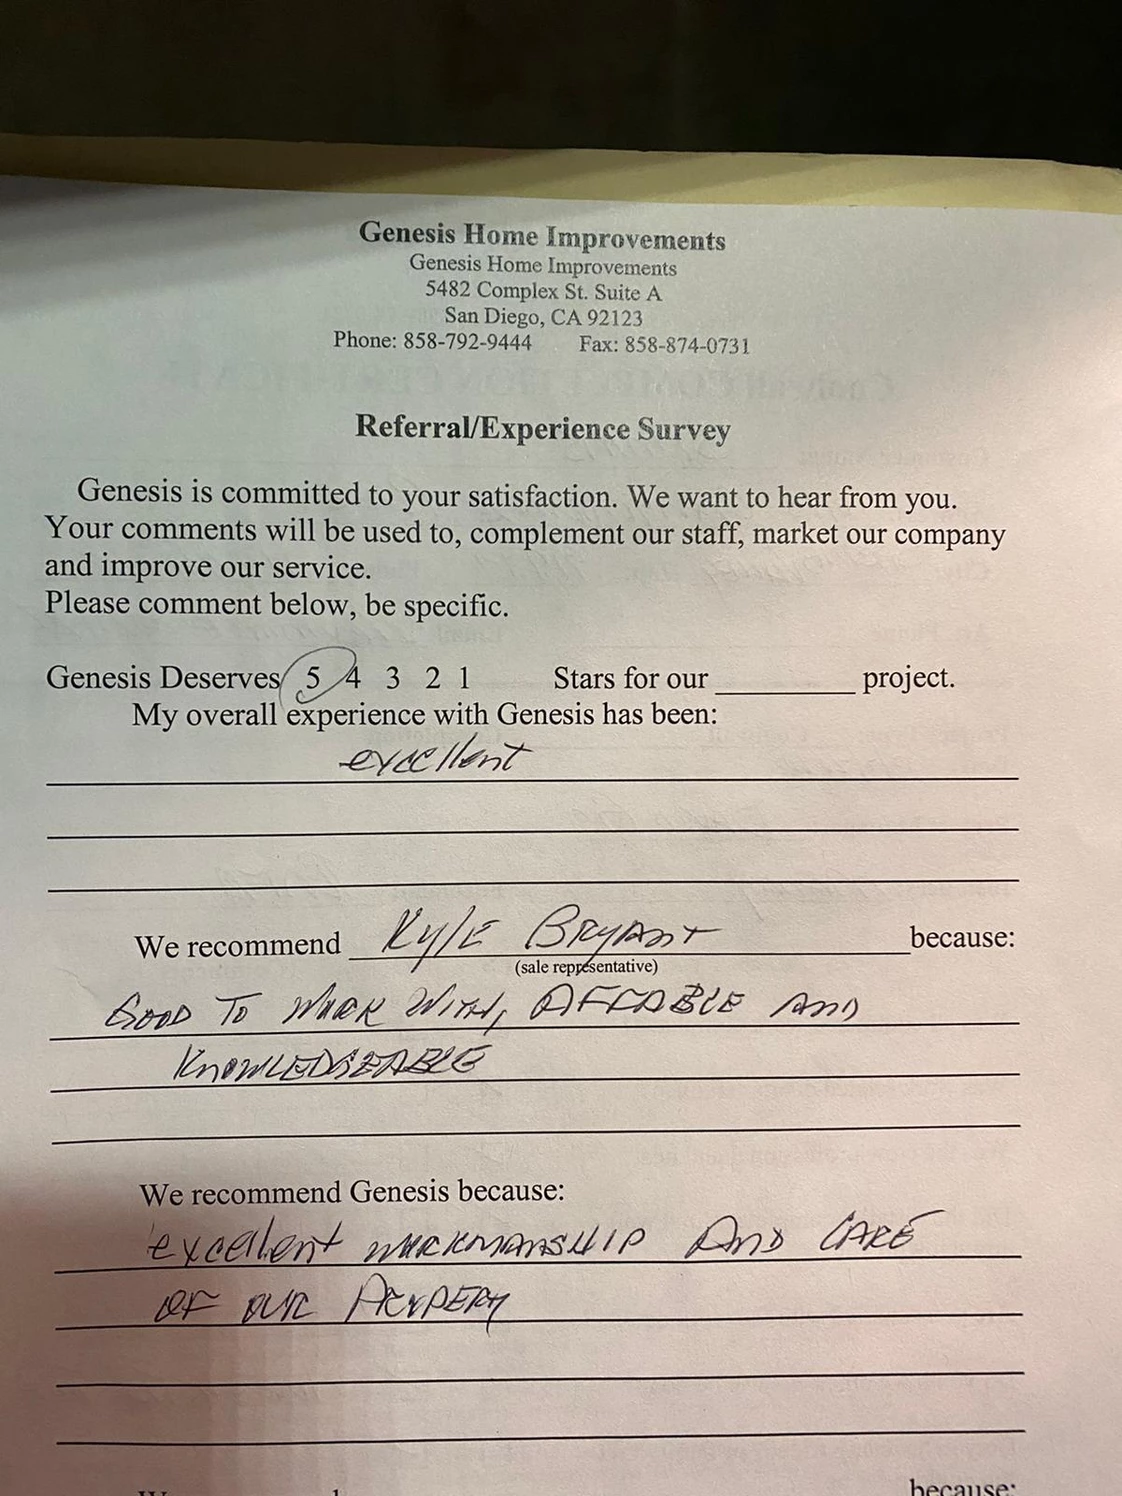 Genesis Home Improvements
Genesis Home Improvements
5482 Complex St. Suite A
San Diego, CA 92123
Phone: 858-792-9444 Fax: 858-874-0731
Referral/Experience Survey
Genesis is committed to your satisfaction. We want to hear from you.
Your comments will be used to, complement our staff, market our company
and improve our service.
Please comment below, be specific.
Genesis Deserves 5 4 3 2 1 Stars for our ________ project.
My overall experience with Genesis has been:
excellent
We recommend KylE BRYANT because:
(sale representative)
GOOD TO WORK WITH, AFFABLE AND
KNOWLEDGEABLE
We recommend Genesis because:
excellent WORKMANSHIP AND CARE
OF OUR PROPERTY
because: